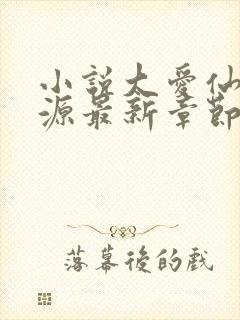 小說太愛仙
源最新章節
落幕後的戲